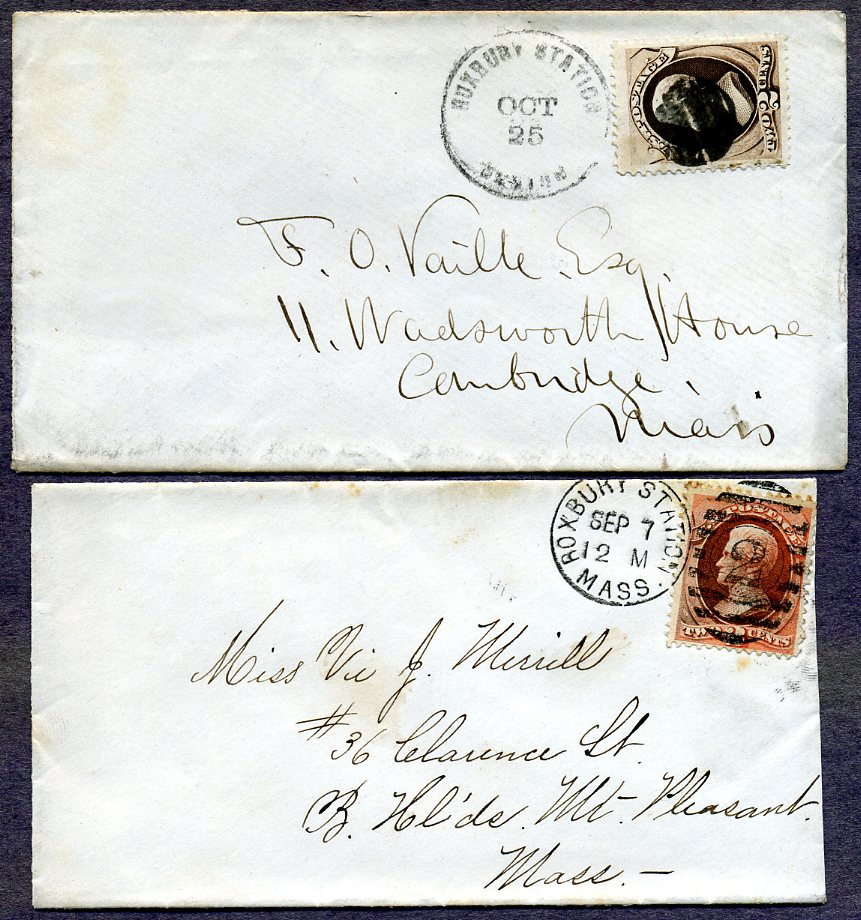 ROXBURY STATION
OCT
25
U.S. POSTAGE
F. O. Vaille. Esq.
11. Wadsworth House
Cambridge.
Mass
ROXBURY STATION
SEP 7
12 M
MASS.
POSTAGE
TWO 2 CENTS
Miss Vic J. Merrill
#36 Clarence St.
B. Hl'ds. Mt. Pleasant.
Mass. —